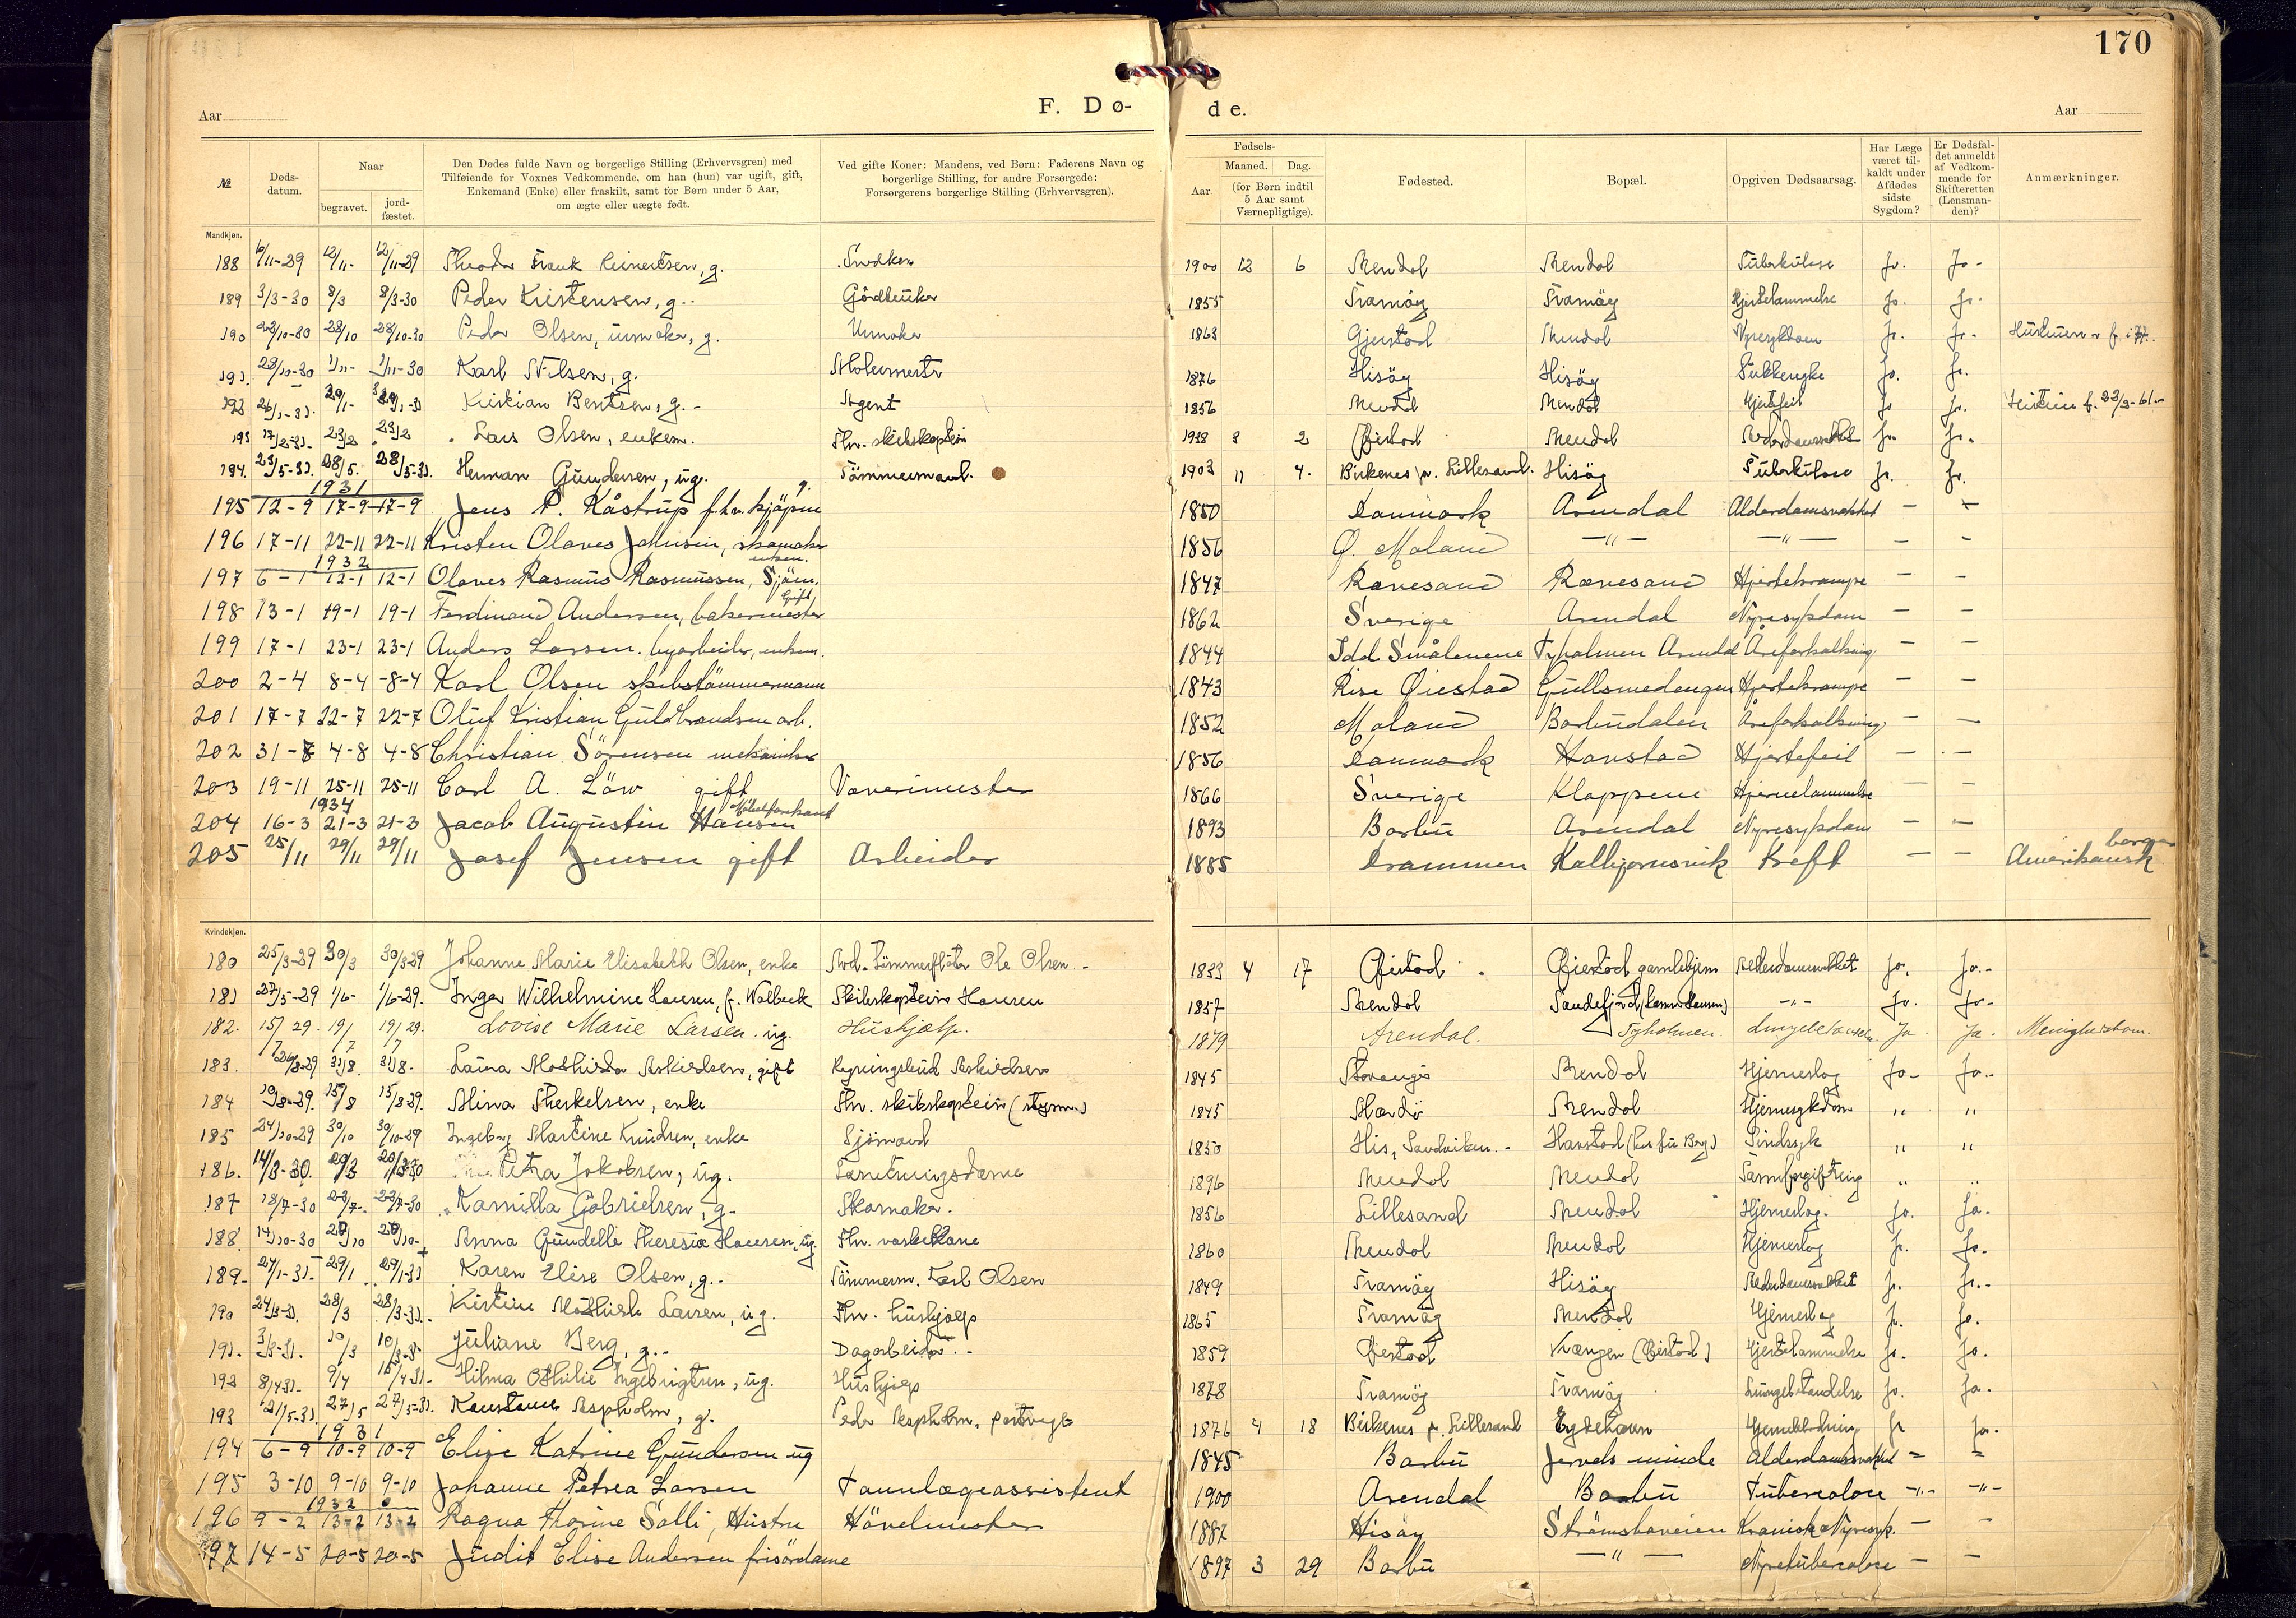 170
Aar
F. Dø-
de.
Aar
№
Dødsdatum.
Naar
begravet.
jordfæstet.
Den Dødes fulde Navn og borgerlige Stilling (Erhvervsgren) med
Tilføiende for Voxnes Vedkommende, om han (hun) var ugift, gift,
Enkemand (Enke) eller fraskilt, samt for Børn under 5 Aar,
om ægte eller uægte født.
Ved gifte Koner: Mandens, ved Børn: Faderens Navn og
borgerlige Stilling, for andre Forsørgede:
Forsørgerens borgerlige Stilling (Erhvervsgren).
Fødsels-
Aar.
Maaned.
Dag.
(for Børn indtil
5 Aar samt
Værnepligtige).
Fødested.
Bopæl.
Opgiven Dødsaarsag.
Har Læge
været til-
kaldt under
Afdødes
sidste
Sygdom?
Er Dødsfal-
det anmeldt
af Vedkom-
mende for
Skifteretten
(Lensman-
den)?
Anmærkninger.
Mandkjøn.
188 6/11-29 12/11- 12/11-29 Frank Reinertsen, g. Snedker 1900 12 6 Arendal Arendal Tuberkulose Ja. Ja-
189 3/3-30 8/3 8/3-30 Peder Kristensen, g. Gårdbruker 1855 Tromøy Tromøy Hjertelammelse Ja. Ja.
190 28/10 28/10-30 Peder Olsen, urmaker, g. Urmaker 1863 Gjerstad Arendal Nyresykdom Ja. Ja-
191. 28/10-30 1/11- 1/11-30 Karl Nilsen, g. Malermester 1876 Hisøy Hisøy Sukkersyke Ja. Ja.
Kristian Bentsen, g.- Agent 1856 Arendal Arendal Hjertefeil Ja Ja.
Lars Olsen, enkem. Fhv. skibskaptein 2 Øiestad Arendal Alderdomssvakhet Ja. Ja.
194. 28/5. 28/5-31. Herman Gundersen, ug. Tömmermand. 1903 11 4. Birkenes pr. Lillesand. Hisøy Tuberkulose Ja. Ja.
1931
195 12-9 17-9 17-9 Jens P. Kåstrup f.hv. kjöpm g. 1850 Danmark Arendal Alderdomssvakhet - -
196 17-11 22-11 22-11 Kristen Olaves Johnsen, skomaker enkem. 1856 Ø. Moland -"- -"- - -
1932
197 6-1 12-1 12-1 Olaves Rasmus Rasmussen, Sjöm. 1847 Rævesand Rævesand Hjertekrampe - -
198 13-1 19-1 19-1 Ferdinand Andersen, bakermester Gift 1862 Sverige Arendal Nyresykdom - -
199 17-1 23-1 23-1 Anders Larsen. byarbeider, enkem. 1844 Idd Smålenene Tyholmen Arendal Åreforkalkning - -
200 2-4 8-4 -8-4 Karl Olsen skibstömmermann 1843 Rise Øiestad Gullsmedengen Hjertekrampe - -
201 17-7 22-7 22-7 Oluf Kristian Guldbrandsen arb. 1852 Moland Barbudalen Åreforkalkning - -
202 31-7 4-8 4-8 Christian Sörensen mekaniker 1856 Danmark Harstad Hjertefeil - -
203 19-11 25-11 25-11 Carl A. Löw gift Vaverimester 1866 Sverige Kloppene Hjernelammelse - -
1934
204 16-3 21-3 21-3 Jacob Augustin Hansen 1893 Barbu Arendal Nyresykdom - -
205 25/11 29/11 29/11 Josef Jensen gift Arbeider 1885 Drammen Kolbjornsvik Kreft - - Amerikansk borger
Kvindekjøn.
180 25/3-29 30/3 30/3-29 Johanne Marie Elisabeth Olsen, enke Avd. Tömmerfløter Ole Olsen - 1833 4 17 Øiestad Øiestad gamlehjem Alderdomssvakhet Ja. Ja.-
181 27/5-29 1/6- 1/6-29. Inger Wilhelmine Hansen, f. Walbeck Skibskaptein Hansen 1857 Arendal -"- Ja. Ja-
182. 15/7 29. 19/7 19/7 29. Lovise Marie Larsen. ug. Hushjælp. 1879 Arendal. Tyholmen. Ja Ja. Menighetshom.
183. 31/8. 31/8- Laura Mathilda Askildsen, gift Askildsen 1845 Stavanger Arendal Hjerneslag Ja- Ja-
184 10/8-29. 15/8 15/8-29. Alina Therkelsen, enke Fhv. skibskaptein 1845 Mærdø Arendal Hjernesykdom " "
185 24/10-29 30/10 30/10-29 Ingeborg Martine Knudsen, enke Sjömand 1850 His, Sandviken.- Harstad Sindssyk " "
186. 14/3-30. 20/3 20/3-30 Petra Jakobsen, ug. Forretningsdame 1896 Arendal Arendal " "
187 18/7-30 23/7-. 23/7-30 Kamilla Gabrielsen, g- Skomaker. 1856 Lillesand Arendal Hjerneslag. Ja. Ja.
188. 14/10-30 20/10 20/10- Anna Gundelle Theresia Hansen, ug. Fhv. vaskekone 1860 Arendal Arendal Hjerneslag Ja. Ja.
189- 24/1-31- 29/1 29/1-31 Karen Elise Olsen, g.- Tömmerm. Karl Olsen 1849 Tromøy Hisøy Alderdomssvakhet Ja. Ja.-
190 24/3-31. 28/3 28/3-31.- Kirstine Mathilde Larsen, ug. Fhv. hushjælp 1865 Tromøy Arendal Hjerneslag Ja. Ja.
191. 10/3 Juliane Berg, g.- Dagarbeider.- 1859 Øiestad (Øiestad) Hjertelammelse Ja- Ja.
8/4-31- Hilma Othilie Ingebrigtsen, ug. Hushjelp 1878 Tromøy Tromøy Lungebetændelse Ja. Ja.
193 21/5-31. 27/5 27/5-31. Konstanse Aspholm, g. Peder Aspholm, 1876 4 18 Birkenes p. Lillesand Eydehavn Ja Ja.
1931
194 6-9 10-9 10-9 Elise Katrine Gundersen ug 1845 Barbu Jervels minde Alderdomssvakhet = =
195 3-10 9-10 9-10 Johanne Petrea Larsen Tannlægeassistent 1900 Arendal Barbu Tuberculose -"- -"-
1932
196 9-2 13-2 13-2 Ragna Thorine Solli, Hustru Hövelmester 1887 Hisöy Strömsbuveien Kronisk Nyresyk. - -
97 14-5 20-5 20-5 Judit Elise Andersen frisördame 1897 3 29 Barbu -"- Nyretuberculose - -